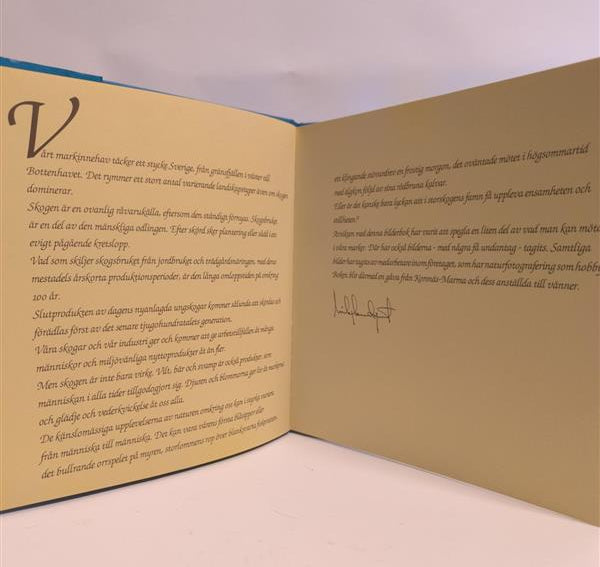 Vårt markinnehav täcker ett stycke Sverige, från gränsfjällen i väster till
Bottenhavet. Det rymmer ett stort antal varierande landskapstyper även om skogen
dominerar.
Skogen är en ovanlig råvarukälla, eftersom den ständigt förnyas. Skogsbruket
är en del av den mänskliga odlingen. Efter skörd sker plantering eller sådd i ett
evigt pågående kretslopp.
Vad som skiljer skogsbruket från jordbruket och trädgårdsnäringen, med dess
mestadels årskorta produktionsperioder, är den långa omloppstiden på omkring
100 år.
Slutprodukten av dagens nyanlagda ungskogar kommer sålunda att skördas och
förädlas först av det senare tjugohundratalets generation.
Våra skogar och vår industri ger och kommer att ge arbetstillfällen åt många
människor och miljövänliga nyttoprodukter åt än fler.
Men skogen är inte bara virke. Vilt, bär och svamp är också produkter, som
människan i alla tider tillgodogjort sig. Djuren och blommorna ger liv åt markerna
och glädje och vederkvickelse åt oss alla.
De känslomässiga upplevelserna av naturen omkring oss kan i styrka variera
från människa till människa. Det kan vara vårens första blåsippor eller
det bullrande orrspelet på myren, storlommens rop över blankstilla
ett klingande älvsborre en frostig morgon, det oväntade mötet i högsommartid
med älgkon följd av sina rödbruna kalvar.
Eller är det kanske bara lyckan att i storskogens famn få uppleva ensamheten och
stillheten?
Avsikten med denna bilderbok har varit att spegla en liten del av vad man kan möta
i våra marker. Där har också bilderna - med några få undantag - tagits. Samtliga
bilder har tagits av medarbetare inom företaget, som har naturfotografering som hobby.
Boken blir därmed en gåva från Korsnäs-Marma och dess anställda till vänner.